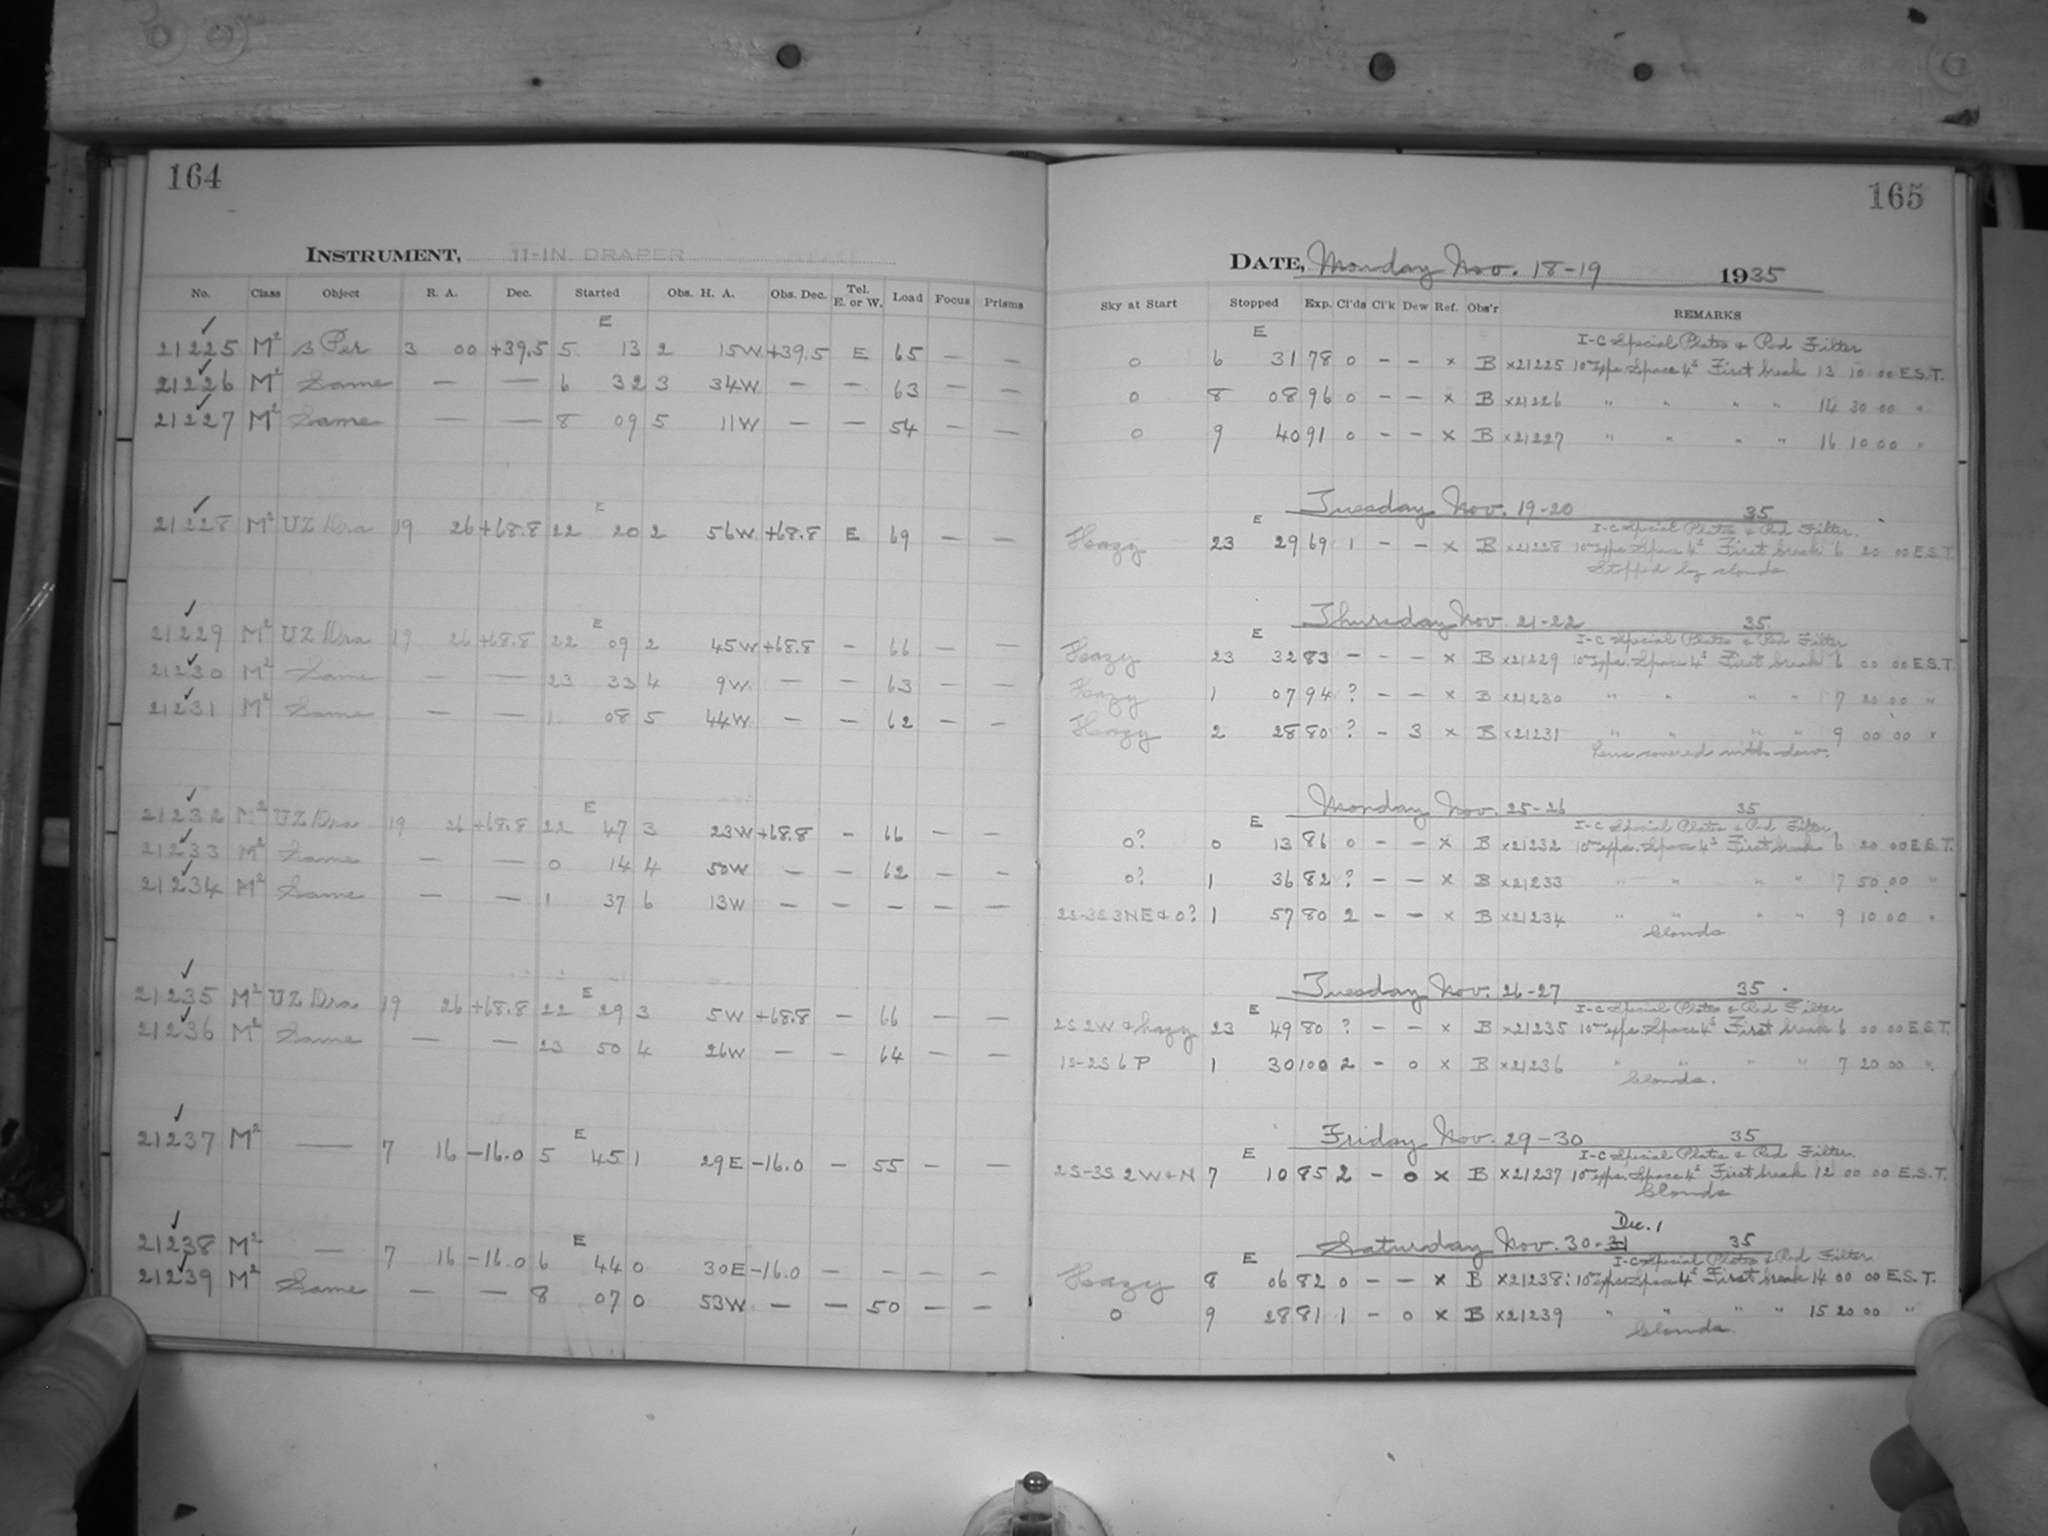 164
INSTRUMENT, 11-IN. DRAPER
No. Class Object R. A. Dec. Started Obs. H. A. Obs. Dec. Tel. E. or W. Load Focus Prisms
E
21225 M² β Per 3 00 +39.5 5 13 2 15W +39.5 E 65 — —
21226 M² Same — — 6 32 3 34W — — 63 — —
21227 M² Same — — 8 09 5 11W — — 54 — —
E
21228 M² UZ Dra 19 26 +68.8 22 20 2 56W +68.8 E 69 — —
E
21229 M² UZ Dra 19 26 +68.8 22 09 2 45W +68.8 — 66 — —
21230 M² Same — — 23 33 4 9W — — 63 — —
21231 M² Same — — 1 08 5 44W — — 62 — —
E
21232 M² UZ Dra 19 26 +68.8 22 47 3 23W +68.8 — 66 — —
21233 M² Same — — 0 14 4 50W — — 62 — —
21234 M² Same — — 1 37 6 13W — — — — —
E
21235 M² UZ Dra 19 26 +68.8 22 29 3 5W +68.8 — 66 — —
21236 M² Same — — 23 50 4 26W — — 64 — —
E
21237 M² — 7 16 -16.0 5 45 1 29E -16.0 — 55 — —
E
21238 M² — 7 16 -16.0 6 44 0 30E -16.0 — — — —
21239 M² Same — — 8 07 0 53W — — 50 — —
165
DATE, Monday Nov. 18-19 1935
Sky at Start Stopped Exp. Cl'ds Cl'k Dew Ref. Obs'r REMARKS
E I-C Special Plates & Red Filter
0 6 31 78 0 — — x B x21225 10ᵐ exps. Space 4ˢ First break 13 10 00 E.S.T.
0 8 08 96 0 — — x B x21226 " " " " 14 30 00 "
0 9 40 91 0 — — x B x21227 " " " " 16 10 00 "
Tuesday Nov. 19-20 35
E I-C Special Plates & Red Filter.
Hazy 23 29 69 1 — — x B x21228 10ᵐ exps. Space 4ˢ First break 6 20 00 E.S.T.
Stopped by clouds.
Thursday Nov. 21-22 35
E I-C Special Plates & Red Filter
Hazy 23 32 83 — — — x B x21229 10ᵐ exps. Space 4ˢ First break 6 00 00 E.S.T.
Hazy 1 07 94 ? — — x B x21230 " " " " 7 20 00 "
Hazy 2 28 80 ? — 3 x B x21231 " " " " 9 00 00 "
Lens covered with dew.
Monday Nov. 25-26 35
E I-C Special Plates & Red Filter
0? 0 13 86 0 — — x B x21232 10ᵐ exps. Space 4ˢ First break 6 20 00 E.S.T.
0? 1 36 82 ? — — x B x21233 " " " " 7 50 00 "
2S-3S 3NE & 0? 1 57 80 2 — — x B x21234 " " " " 9 10 00 "
Clouds
Tuesday Nov. 26-27 35
E I-C Special Plates & Red Filter
2S 2W & hazy 23 49 80 ? — — x B x21235 10ᵐ exps. Space 4ˢ First break 6 00 00 E.S.T.
1S-2S 6P 1 30 100 2 — 0 x B x21236 " " " " 7 20 00 "
Clouds.
Friday Nov. 29-30 35
E I-C Special Plates & Red Filter.
2S-3S 2W & N 7 10 85 2 — 0 x B x21237 10ᵐ exps. Space 4ˢ First break 12 00 00 E.S.T.
Clouds
Dec. 1
Saturday Nov. 30-31 35
E I-C Special Plates & Red Filter
Hazy 8 06 82 0 — — x B x21238: 10ᵐ exps. Space 4ˢ First break 14 00 00 E.S.T.
0 9 28 81 1 — 0 x B x21239 " " " " 15 20 00 "
Clouds.